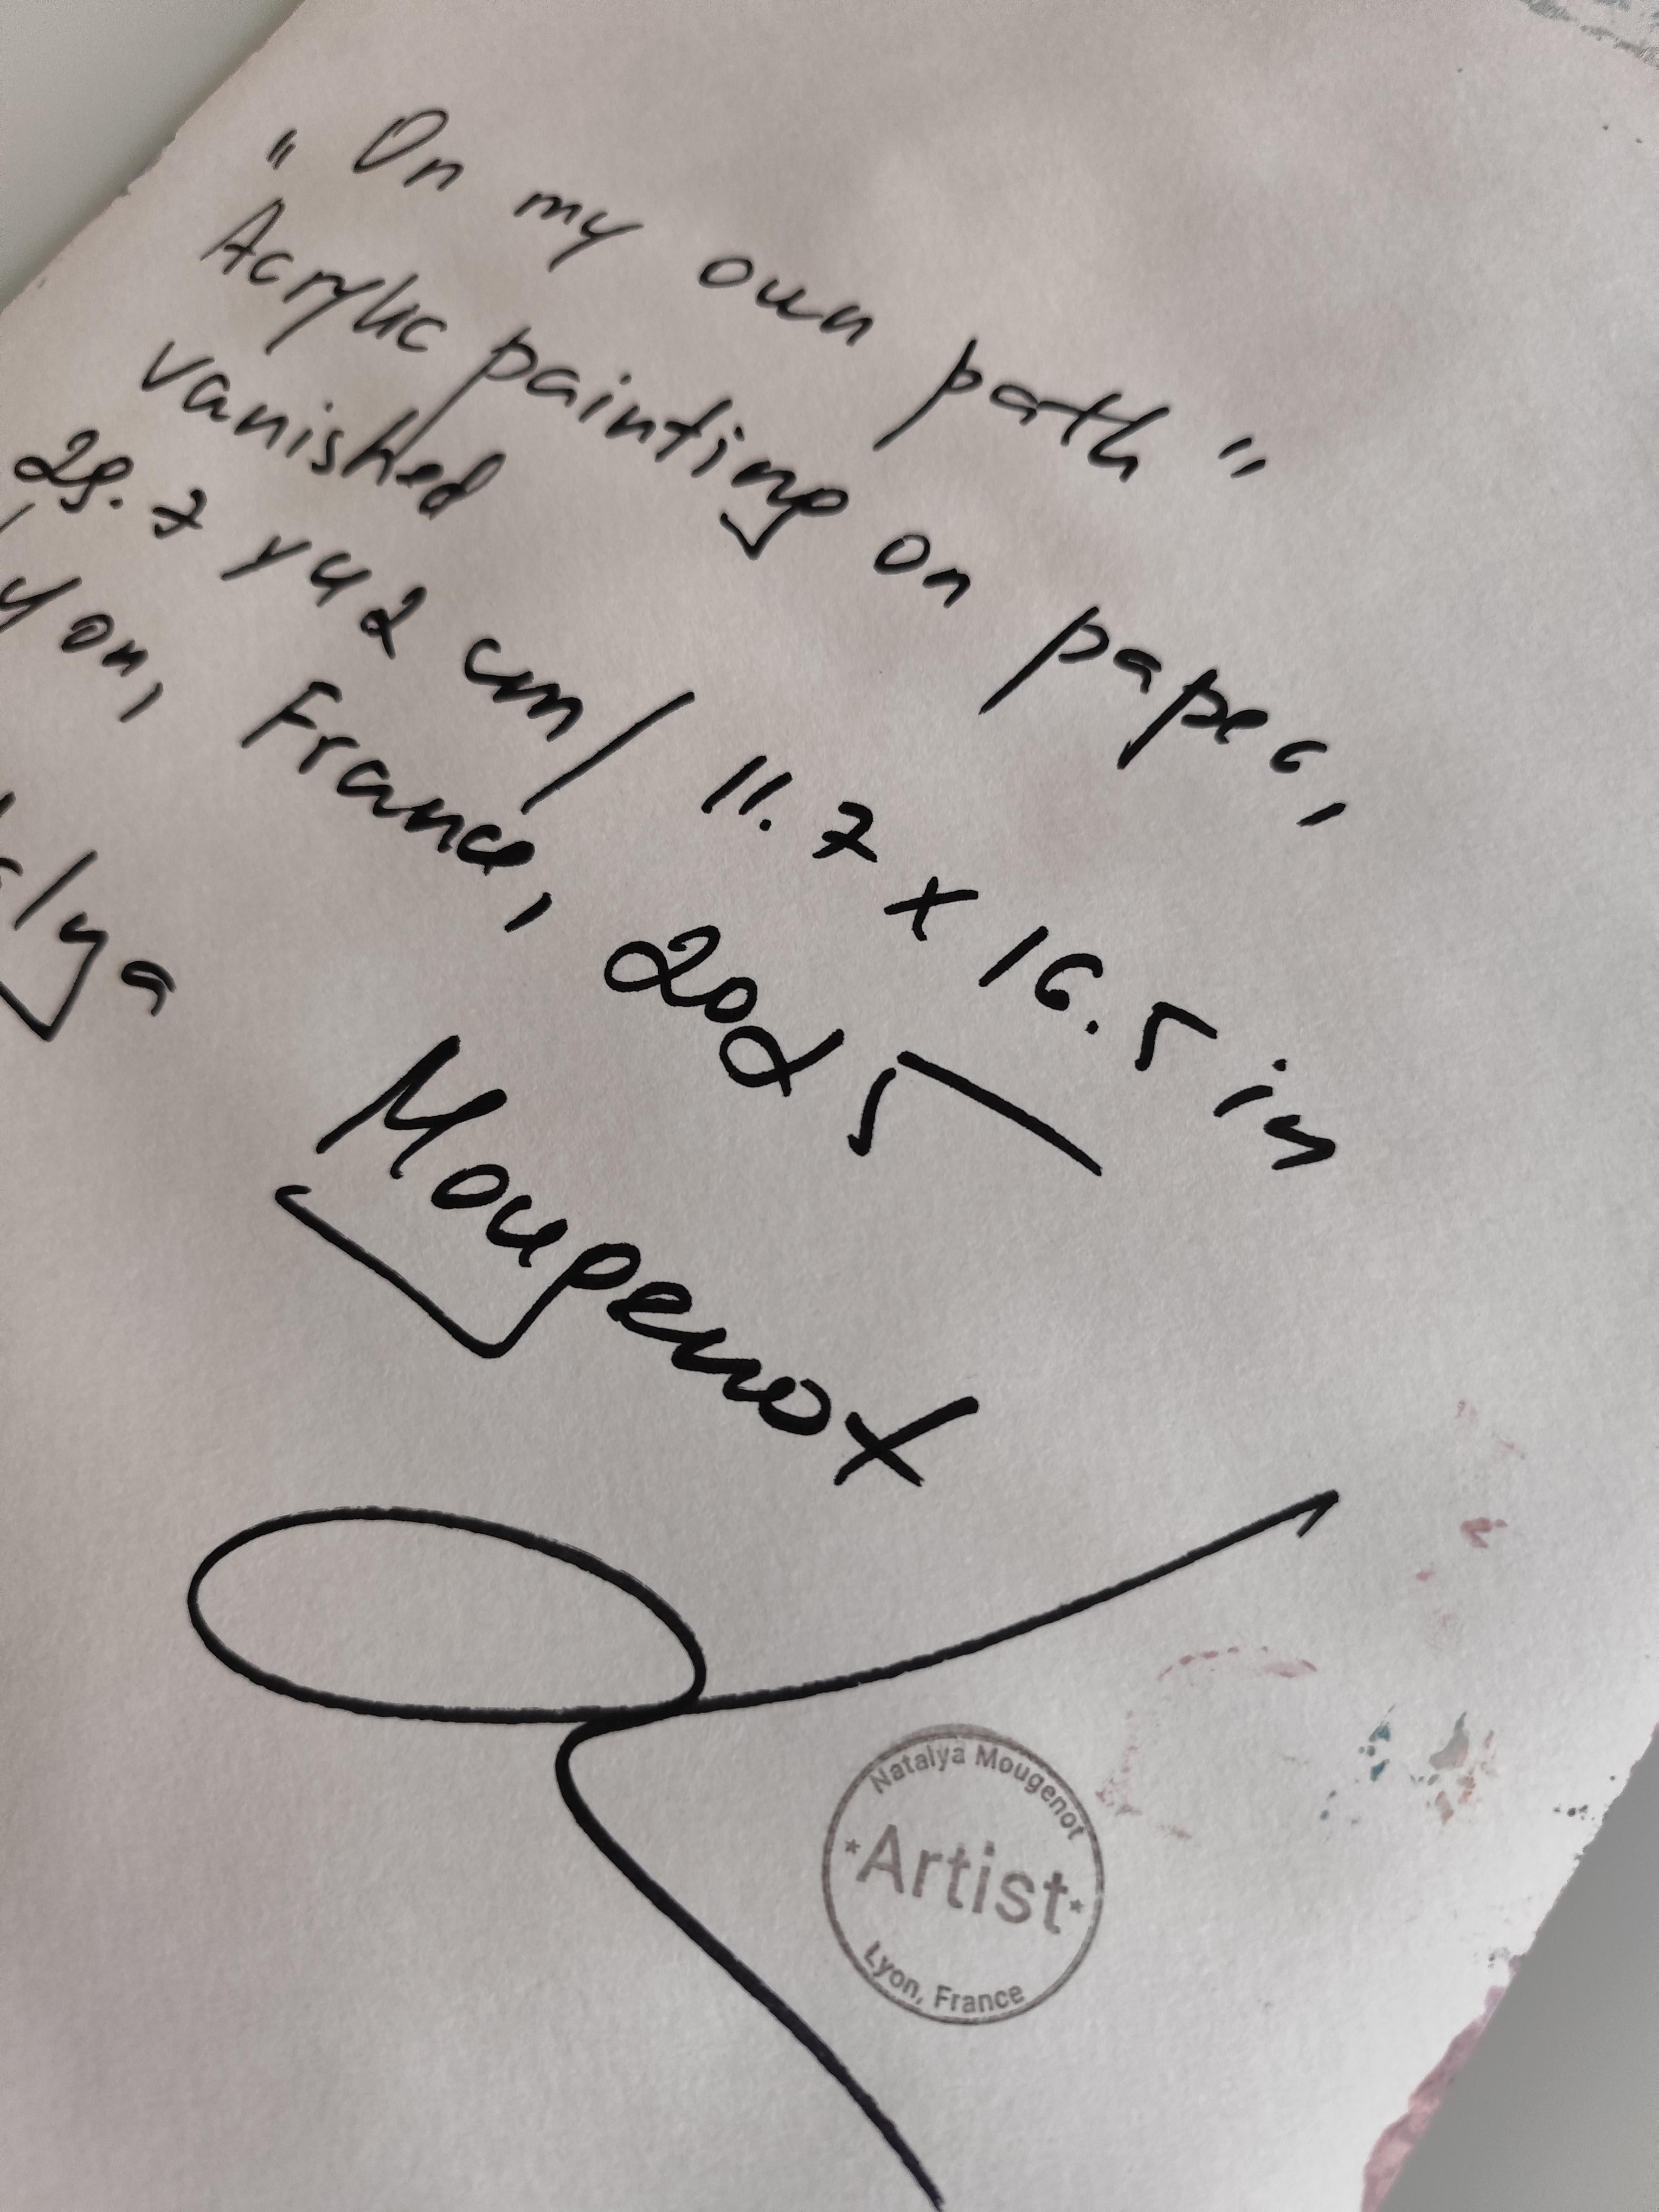 "On my own path"
Acrylic painting on paper,
vanished
29.7 x 42 cm / 11.7 x 16.5 in
yon, France, 2025
alya Mougenot
Natalya Mougenot
*Artist*
Lyon, France